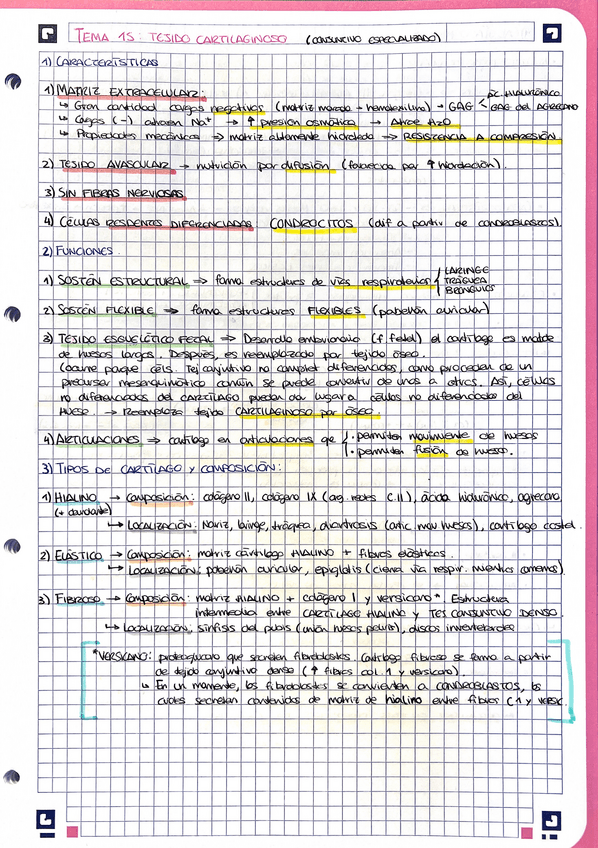 TEMA 15: TEJIDO CARTILAGINOSO (CONJUNTIVO ESPECIALIZADO)
1) CARACTERÍSTICAS
1) MATRIZ EXTRACELULAR:
↳ Gran cantidad cargas negativas (matriz morada - hematoxilina) → GAG < ác. HIALURÓNICO
GAG del AGRECANO
↳ Cargas (-) atraen Na⁺ → ↑ presión osmótica → Atrae H₂O
↳ Propiedades mecánicas → matriz altamente hidratada → RESISTENCIA A COMPRESIÓN
2) TEJIDO AVASCULAR → nutrición por difusión (favorecida por ↑ hidratación).
3) SIN FIBRAS NERVIOSAS
4) CÉLULAS RESIDENTES DIFERENCIADAS CONDROCITOS (dif a partir de CONDROBLASTOS).
2) FUNCIONES.
1) SOSTÉN ESTRUCTURAL → forma estructuras de vías respiratorias { LARINGE
TRÁQUEA
BRONQUIOS
2) SOSTÉN FLEXIBLE → forma estructuras FLEXIBLES (pabellón auricular)
3) TEJIDO ESQUELÉTICO FETAL → Desarrollo embrionario (f fetal) el cartílago es molde
de huesos largos. Después, es reemplazado por tejido óseo.
(ocurre porque céls. Tej conjuntivo no complet diferenciadas, como proceden de un
precursor mesenquimático común se puede convertir de unas a otras. Así, células
no diferenciadas del CARTÍLAGO pueden dar lugar a células no diferenciadas del
HUESO. → Reemplaza tejido CARTILAGINOSO por ÓSEO.
4) ARTICULACIONES → cartílago en articulaciones que { · permiten movimiento de huesos
· permiten fusión de huesos.
3) TIPOS DE CARTÍLAGO Y COMPOSICIÓN:
1) HIALINO → Composición: colágeno II, colágeno IX (ag. redes C.II), ácido hialurónico, agrecano
(+ abundante)
↳ LOCALIZACIÓN: Nariz, laringe, tráquea, diartrosis (artic mov huesos), cartílago costal.
2) ELÁSTICO → Composición: matriz cartílago HIALINO + fibras elásticas.
↳ LOCALIZACIÓN: pabellón auricular, epiglotis (cierra vía respir. mientras comemos)
3) FIBROSO → Composición: matriz HIALINO + colágeno I y versicano* Estructura
intermedia entre CARTÍLAGO HIALINO y TEJ CONJUNTIVO DENSO.
↳ LOCALIZACIÓN: sínfisis del pubis (unión huesos pelvis), discos invertebrales
*VERSICANO: proteoglucano que secretan fibroblastos. Cartílago fibroso se forma a partir
de tejido conjuntivo denso (↑ fibras col. 1 y versicano).
↳ En un momento, los fibroblastos se convierten a CONDROBLASTOS, los
cuales secretan contenidos de matriz de hialino entre fibras (1 y VERSIC.